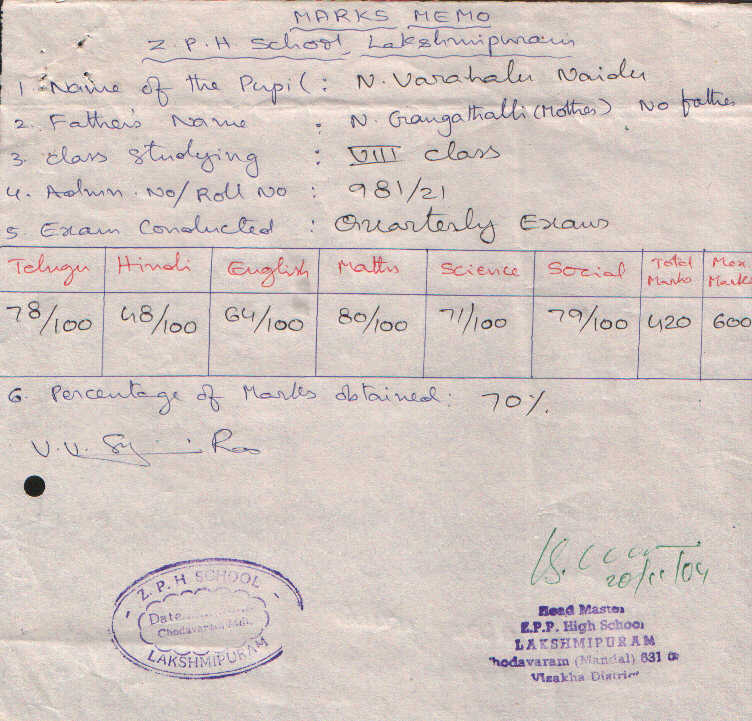 MARKS MEMO
Z.P.H School, Lakshmipuram
1. Name of the Pupil : N. Varahalu Naidu
2. Father's Name : N. Gangathalli (Mother) No father
3. class studying : VIII class
4. Admn. No/Roll No : 981/21
5. Exam Conducted : Quarterly Exams
Telugu Hindi English Maths Science Social Total Marks Max Marks
78/100 48/100 64/100 80/100 71/100 79/100 420 600
6. Percentage of Marks obtained: 70%
V.V. Rao
20/11/04
Z.P.H SCHOOL
Date
Chodavaram Mdl.
LAKSHMIPURAM
Head Master
Z.P.P. High School
LAKSHMIPURAM
hodavaram (Mandal) 531 0
Visakha District